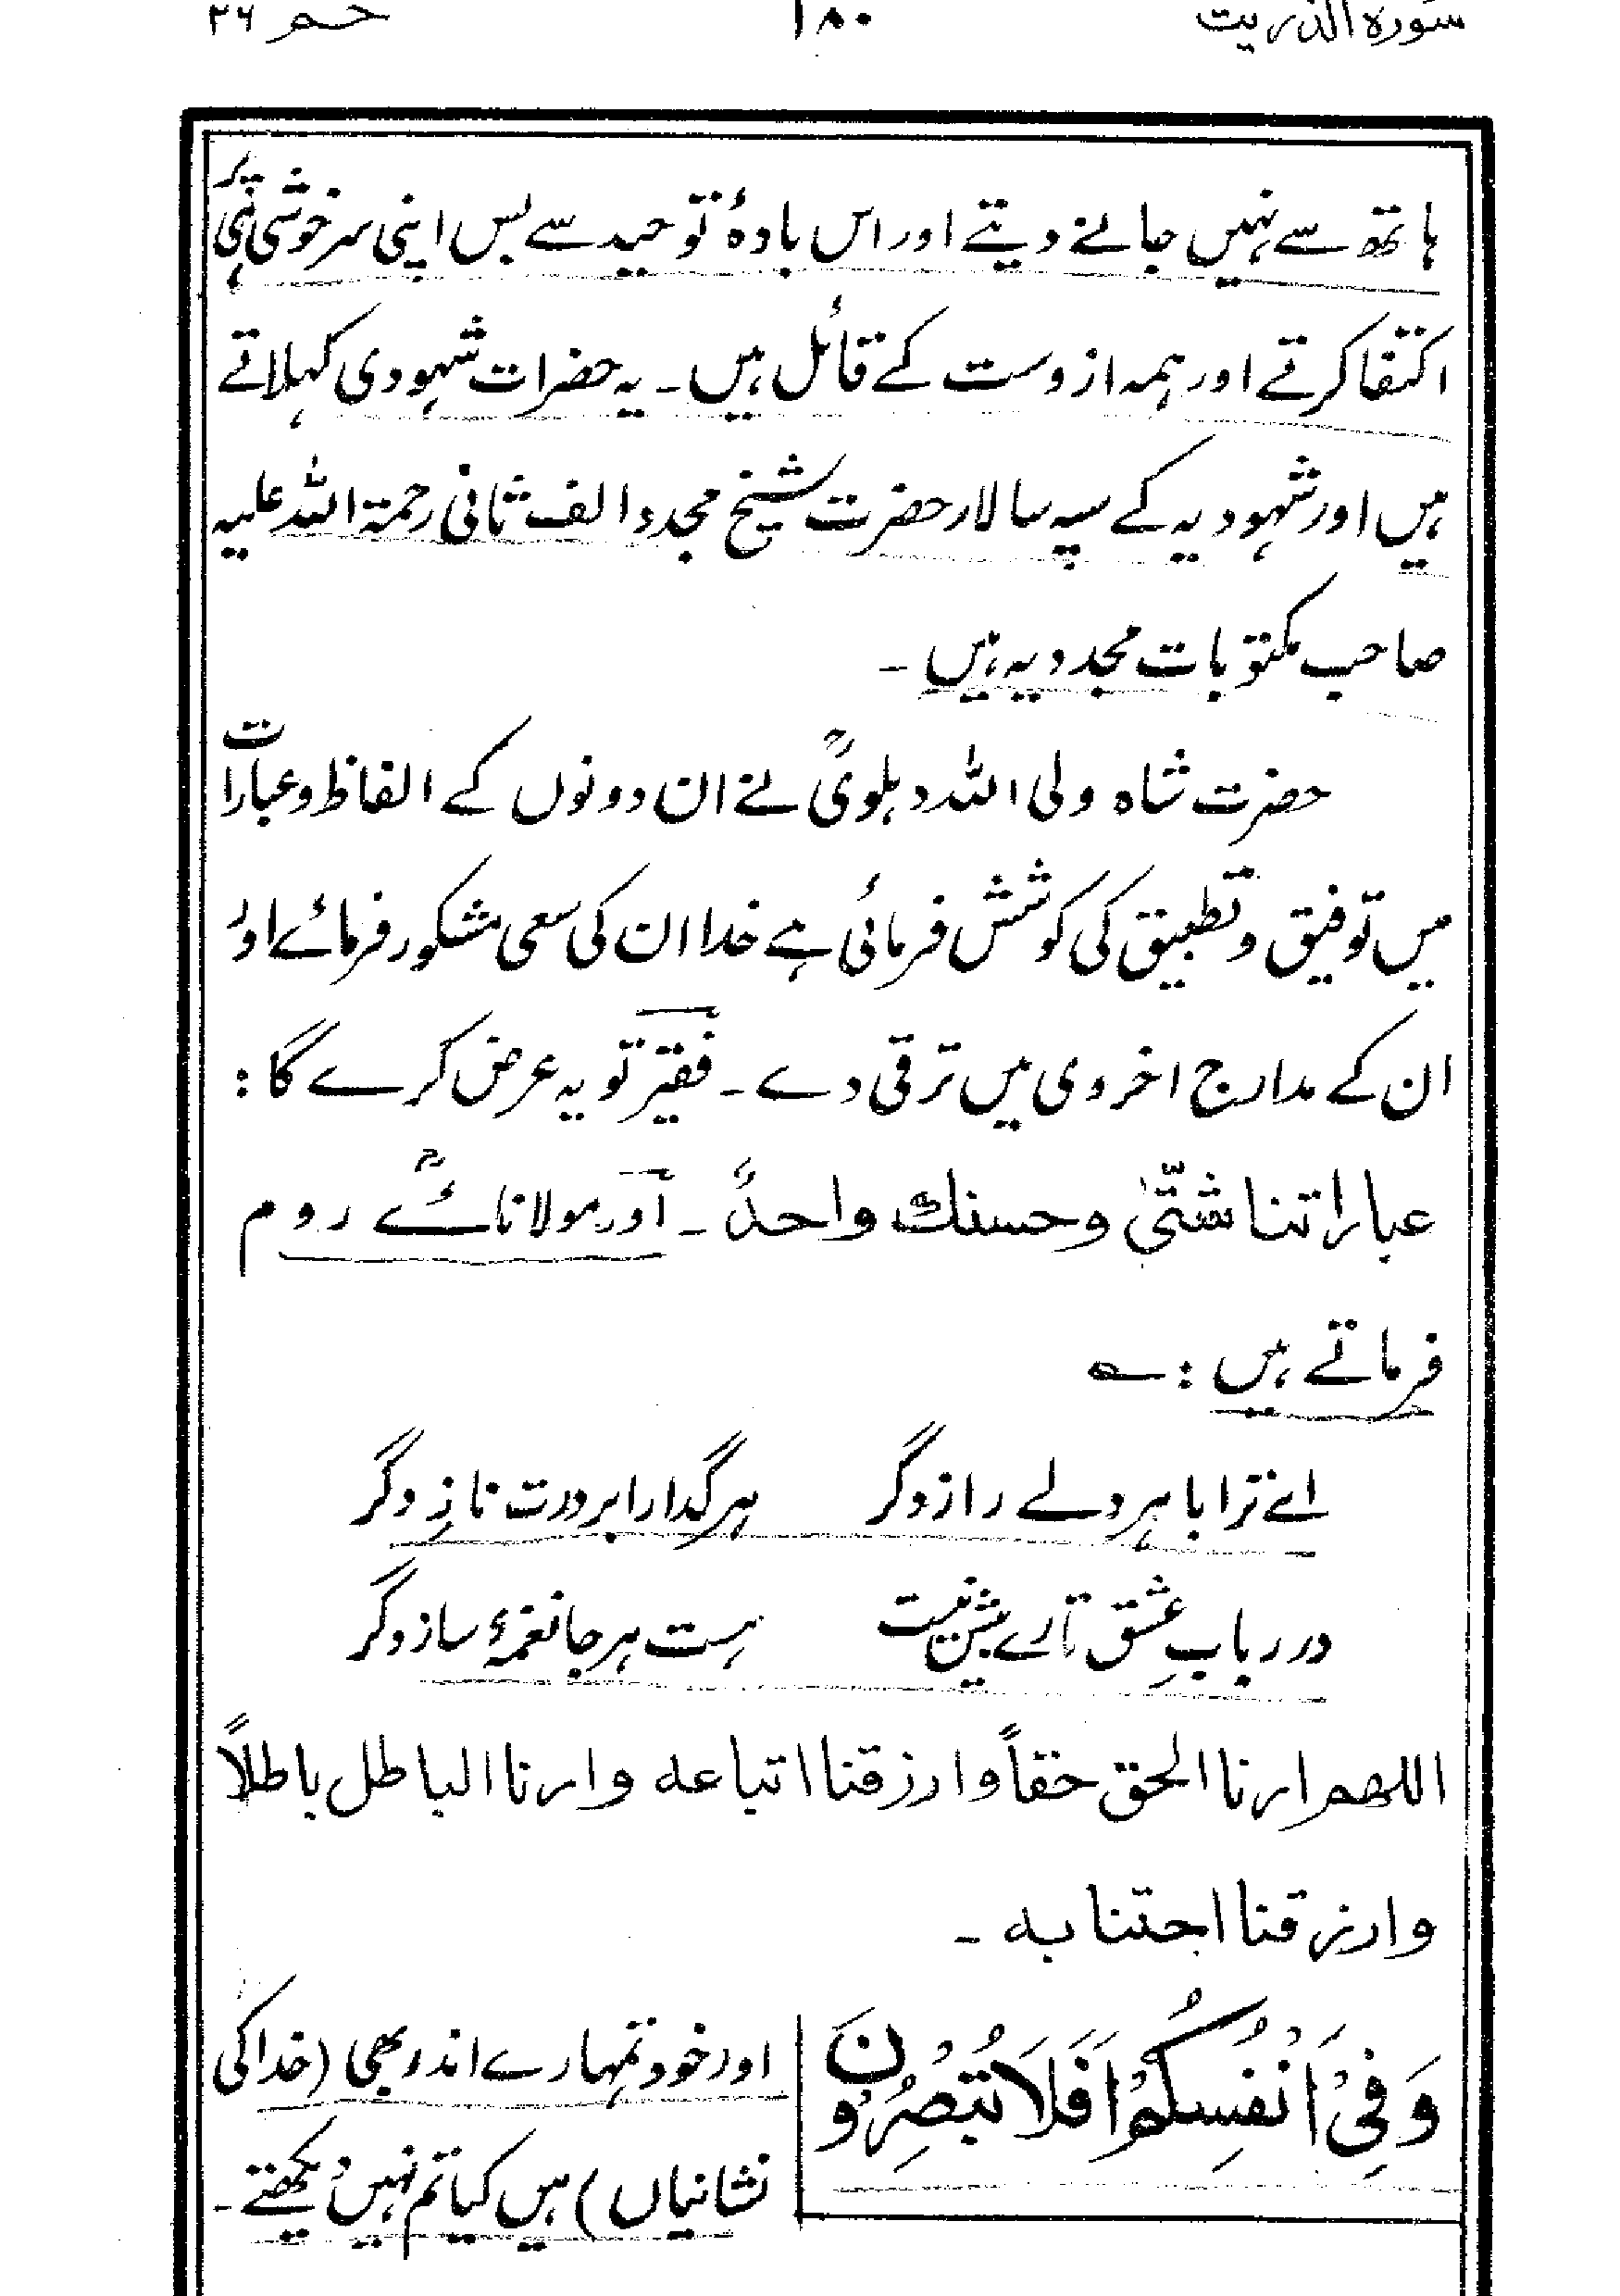 سورہ الذٰریٰت ۱۸۰ حٰم ۲۶
ہاتھ سے نہیں جانے دیتے اور اس بادۂ توحید سے بس اپنی سرخوشی ہی پر
اکتفا کرتے اور ہمہ از وست کے قائل ہیں۔ یہ حضرات شہودی کہلاتے
ہیں اور شہودیہ کے سپہ سالار حضرت شیخ مجدد الف ثانی رحمۃ اللہ علیہ
صاحب مکتوبات مجددیہ ہیں۔
حضرت شاہ ولی اللہ دہلویؒ نے ان دونوں کے الفاظ و عبارات
میں توفیق و تطبیق کی کوشش فرمائی ہے خدا ان کی سعی مشکور فرمائے اور
ان کے مدارج اخروی میں ترقی دے۔ فقیر تو یہ عرض کرے گا:
عباراتنا شتّٰی وحسنك واحدٌ۔ اور مولانائے رومؒ
فرماتے ہیں: ؎
اے ترا با ہر دلے راز دگر ہر گدا را بر درت ناز دگر
در ربابِ عشق تارے بیش نیست ہست ہر جا نغمۂ ساز دگر
اللهم ارنا الحق حقاً وارزقنا اتباعه وارنا الباطل باطلاً
وارزقنا اجتنابه۔
وَفِيْ اَنْفُسِكُمْ اَفَلَا تُبْصِرُوْنَ
اور خود تمہارے اندر بھی (خدا کی
نشانیاں) ہیں کیا تم نہیں دیکھتے۔